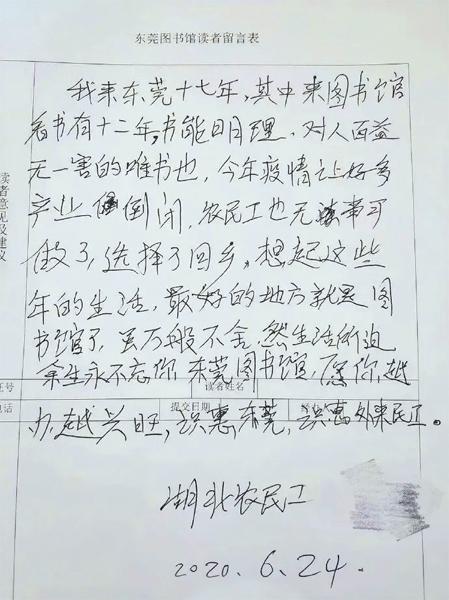 东莞图书馆读者留言表
我来东莞十七年，其中来图书馆
看书有十二年，书能明理，对人百益
无一害的唯书也，今年疫情让好多
产业倒闭，农民工也无事可
做了，选择了回乡。想起这些
年的生活，最好的地方就是图
书馆了，虽万般不舍，然生活所迫
余生永不忘你，东莞图书馆，愿你越
办越兴旺，识惠东莞，识惠外来民工。
湖北农民工
2020.6.24.
读者意见及建议
证号
读者姓名
电话
提交日期